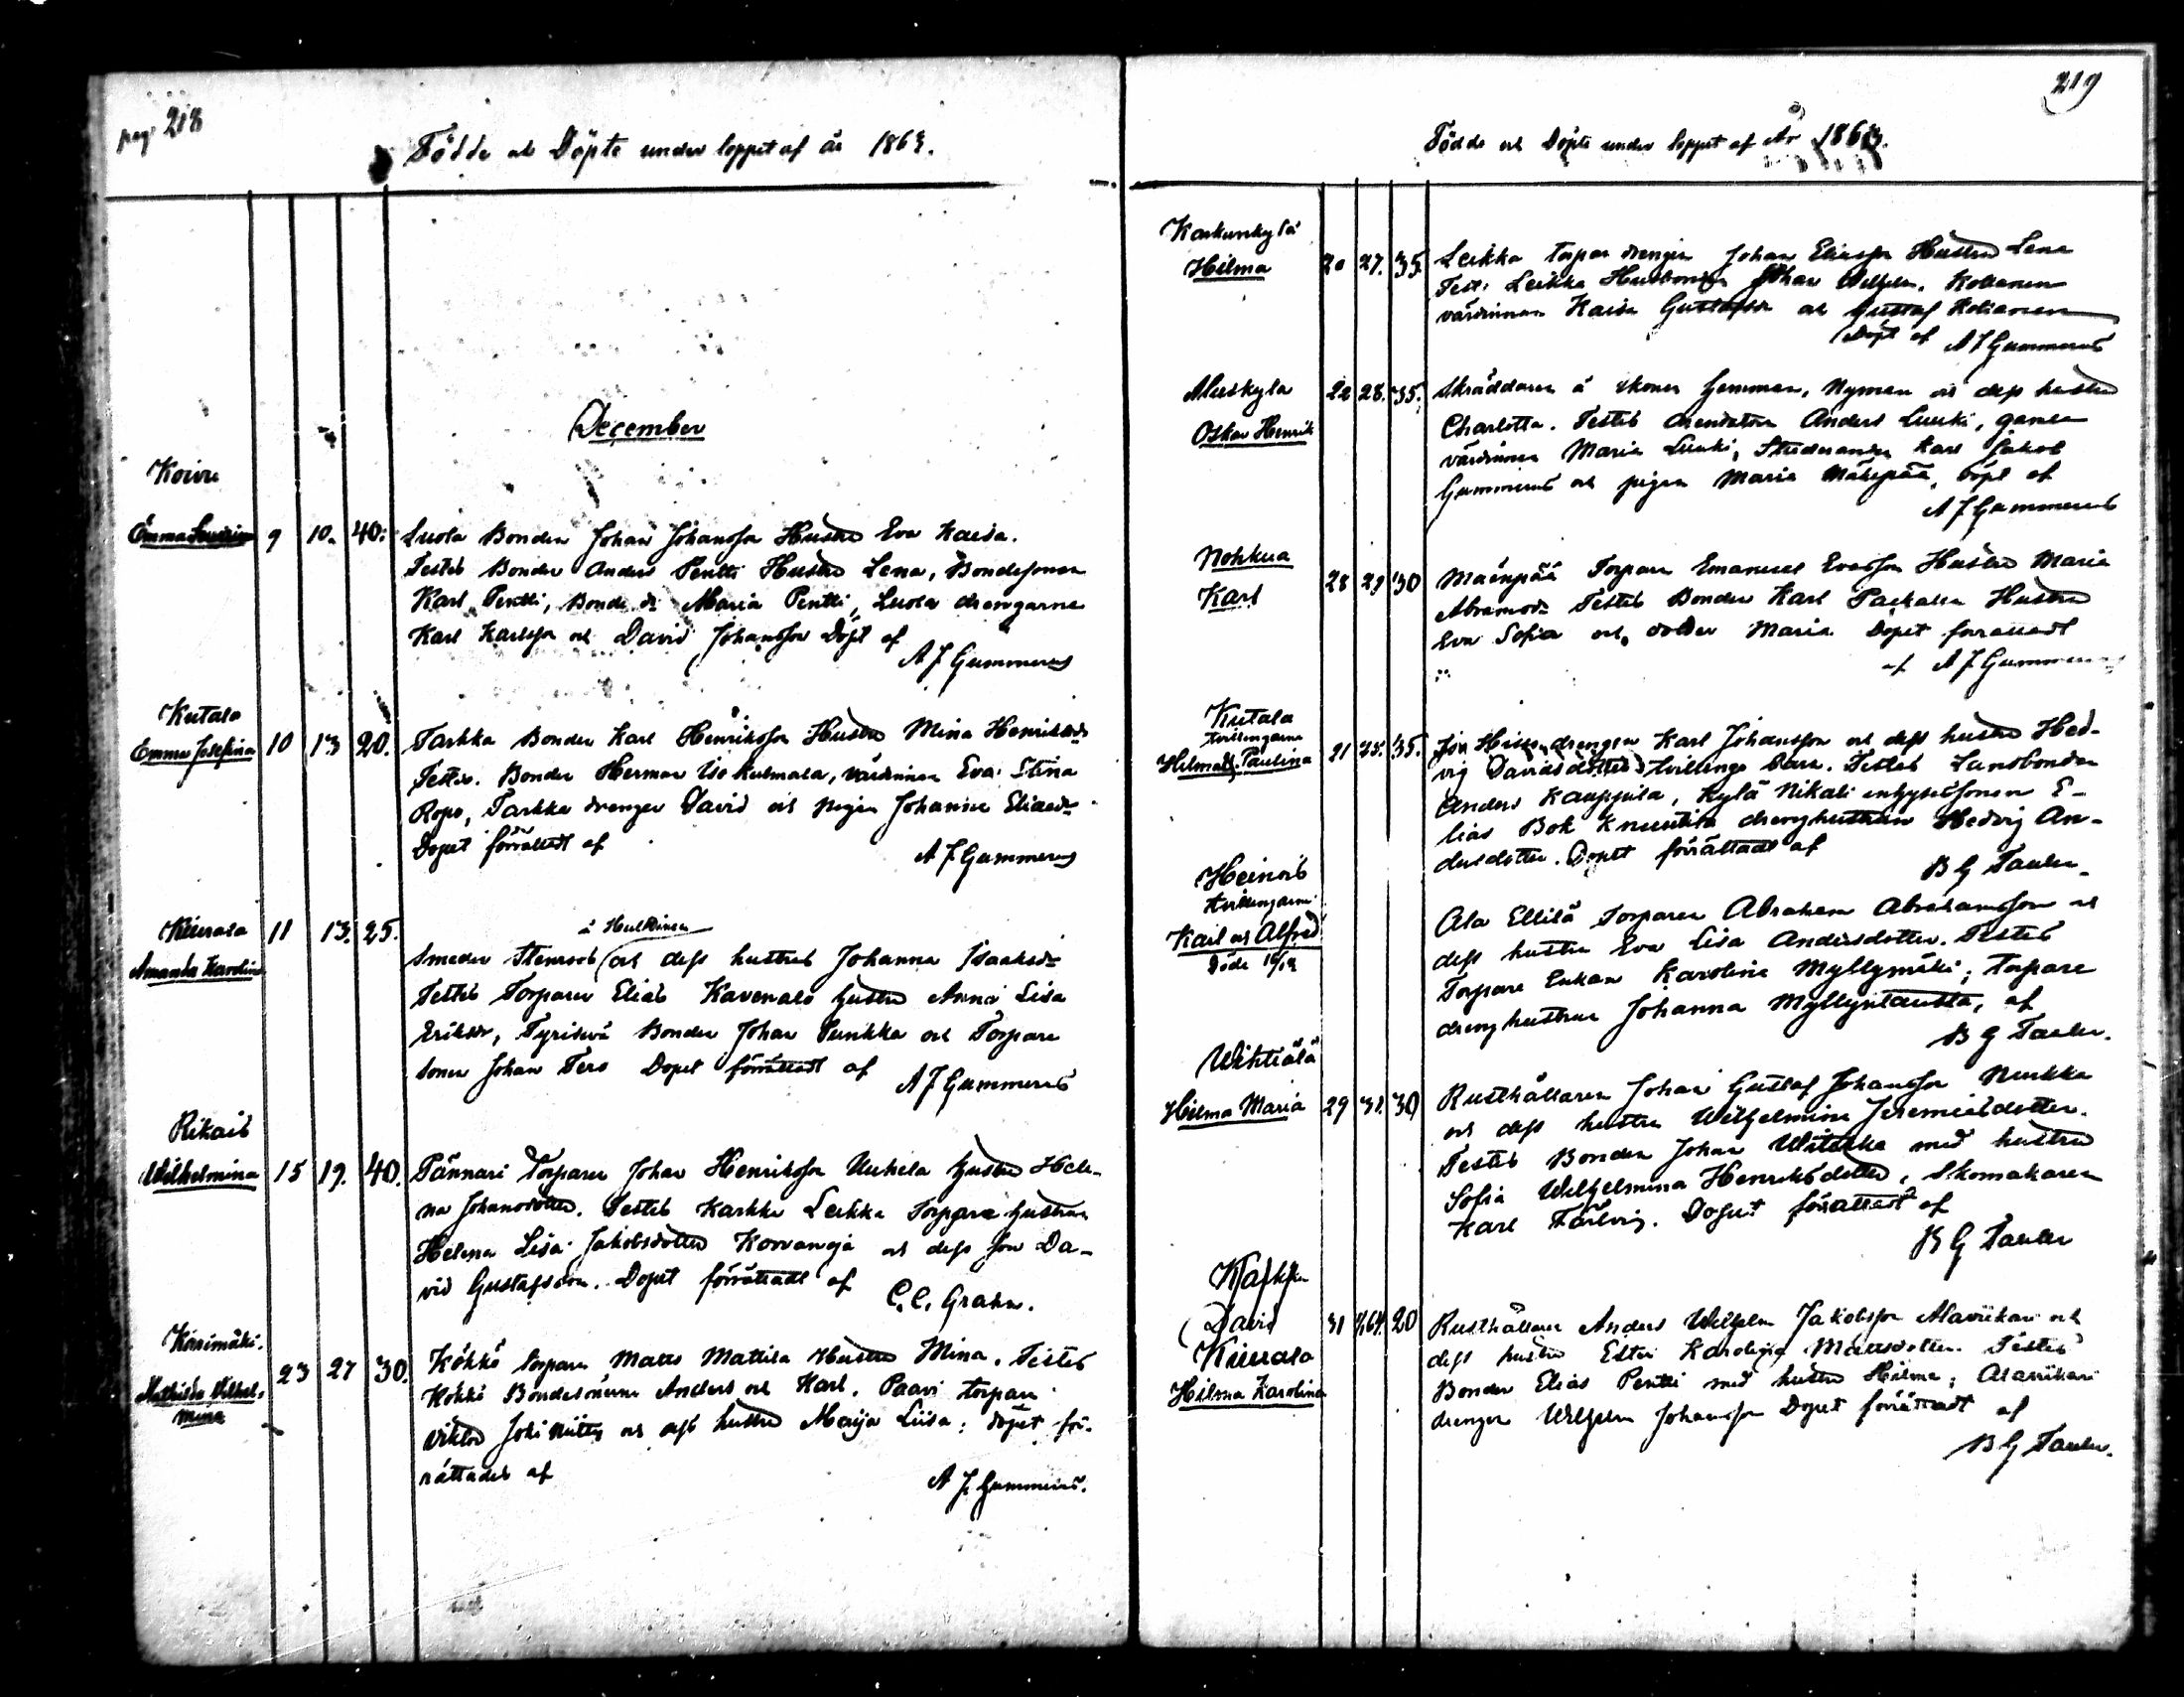 pag. 218
Födde och Döpte under loppet af år 1863.
December
Koivu
Emma 9 10. 40. Luola Bonden Johan Johansson Hustru Eva Kaisa.
Testes Bonden Anders Pentti Hustru Lena, Bondesonen
Karl Pentti, Bonde dr Maria Pentti, Luola drengarne
Karl Karlsson och David Johansson Döpt af
A J Gummerus
Kutala
Emma Josefina 10 13 20. Tarkka Bonden Karl Henriksson Hustru Mina Henriksdr
Testes. Bonden Herman Iso Kulmala, värdinnan Eva Stina
Ropo, Tarkka drengen David och pigan Johanna Eliaedr
Dopet förrättadt af
A J Gummerus
Kiurala 11 13. 25. å Huldinen
Amanda Karolina Smeden Stenroos och dess hustrus Johanna Isaaksdr
Testes Torparen Elias Kavenalo hustru Anna Lisa
Eriksdr, Tyrisevä Bonden Johan Punkka och Torpare
sonen Johan Tero Dopet förrättadt af
A J Gummerus
Rikais
Wilhelmina 15 19. 40. Pännäri Torparen Johan Henriksson Uuhela hustru Hele-
na Johansdotter. Testes Karkku Leikka Torpare hustrun
Helena Lisa Jakobsdotter Korvanoja och dess son Da-
vid Gustafsson. Dopet förrättadt af
C. C. Grahn.
Körimäki.
Mathilda Vilhel-
mina 23 27 30. Kökkö torparen Matts Mattila Hustru Mina. Testes
Kökkö Bondesönerne Anders och Karl. Paavi torpare
Viktor Joki Niitty och dess hustru Maija Liisa; dopet för-
rättades af
A J Gummerus.
219
Födde och Döpte under loppet af År 1863.
Karkunkylä
Hilma 20 27. 35. Leikka torpar drengen Johan Eliasson Hustru Lena
Test: Leikka Husbonden Johan Wilhelm. Kottanen
värdinnan Kaisa Gustafsdr och Gustaf Kottanen
Döpt af A J Gummerus
Aluskyla 22 28. 35. Skräddaren å skonen Gemman, Nyman och dess hustru
Oskar Henrik Charlotta. Testes Arendatorn Anders Luuki, gamla
värdinnan Maria Luuki, Studeranden Karl Jakob
Gummerus och pigan Maria Mäkipää, Döpt af
A J Gummerus
Nohkua
Karl 28 29 30 Mäenpää Torparen Emanuel Evasson Hustru Maria
Abramsdr Testes Bonden Karl Paikalla Hustru
Eva Sofia och dotter Maria Dopet förrättadt
af A J Gummerus
Kutala
tvillingarne
Hilma & Paulina 21 25. 35. drengen Karl Johansson och dess hustru Hed-
vig Davidsdotters tvillinge barn. Testes Landbonden
Anders Kauppila, Kylä Nikali inhysessonen E-
lias Bok Knuutila drenghustrun Hedvig An-
dersdotter. Dopet förrättadt af
B G Tauler.
Heinois
tvillingarne
Karl och Alfred
Döde Ala Ellilä Torparen Abraham Abrahamsson och
dess hustru Eva Lisa Andersdotter. Testes
Torpare Enkan Karolina Myllymäki; Torpare
dreng hustrun Johanna Myllyntausta, af
B G Tauler.
Wihtiälä
Hilma Maria 29 31. 30 Rusthållaren Johan Gustaf Johansson Nuukka
och dess hustru Wilhelmina Jeremiedotter.
Testes Bonden Johan Uitukka med hustru
Sofia Wilhelmina Henriksdotter, Skomakaren
Karl Färling. Dopet förrättadt af
B G Tauler
David 31 20 Rusthållaren Anders Wilhelm Jakobsson Alaviikari och
Kiurala dess hustru Ester Karolina Mattsdotter. Testes
Hilma Karolina Bonden Elias Pentti med hustru Hilma; Alaviikari
drengen Wilhelm Johansson Dopet förrättadt af
B G Tauler.